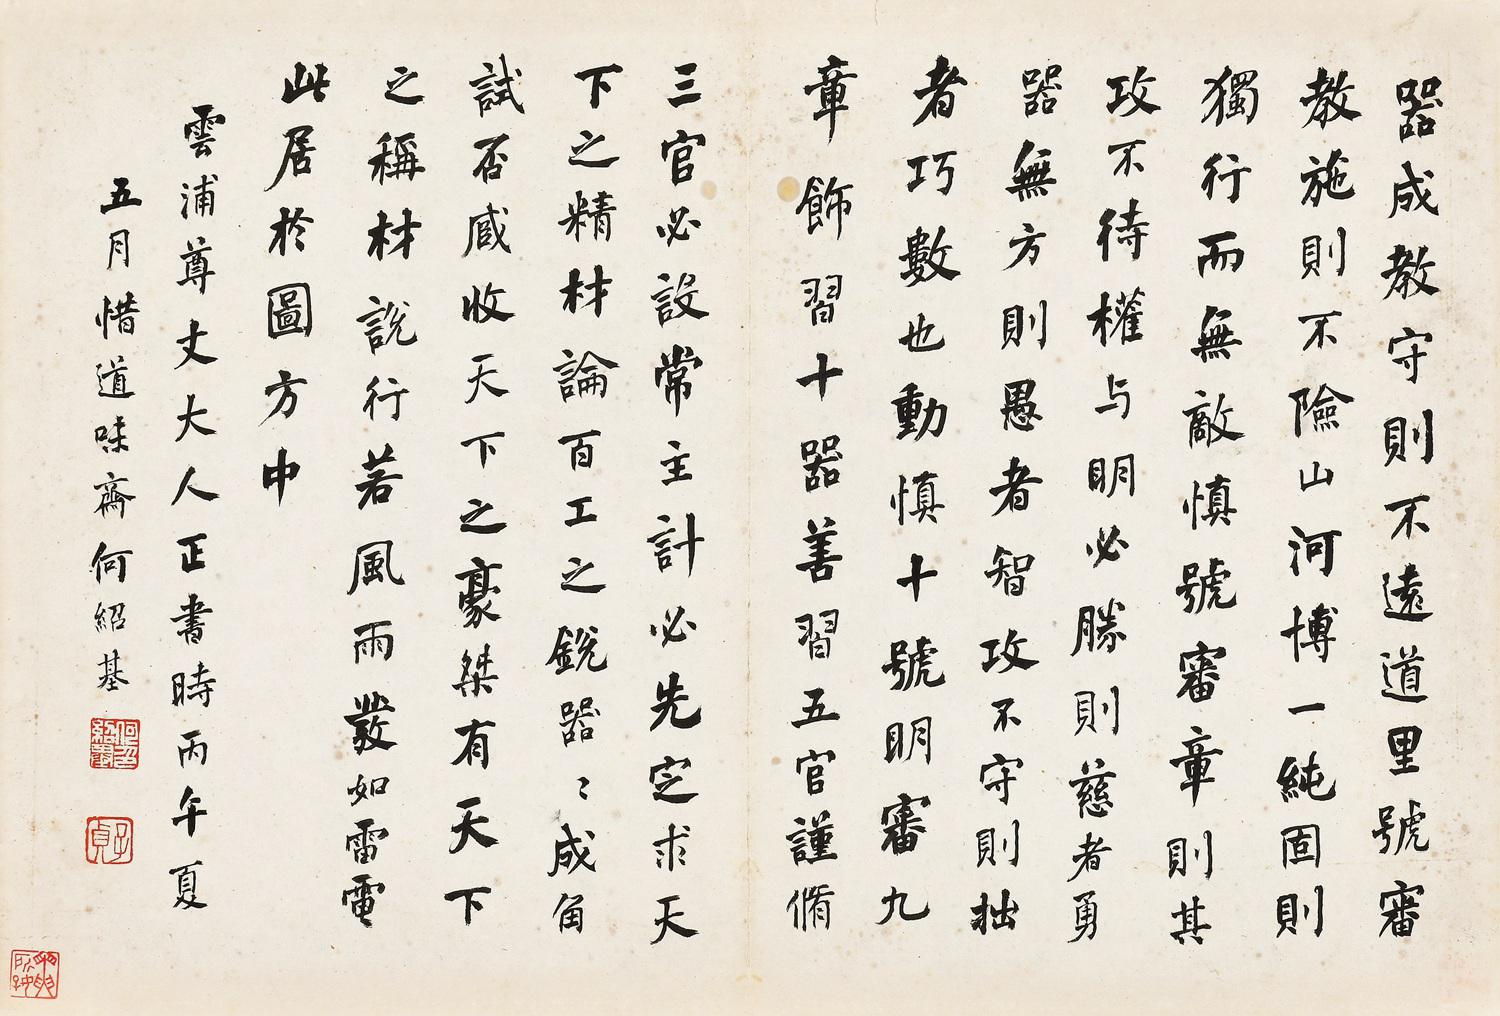 器成教守則不遠道里號審
教施則不險山河博一純固則
獨行而無敵慎號審章則其
攻不待權与明必勝則慈者勇
器無方則愚者智攻不守則拙
者巧數也動慎十號明審九
章飾習十器善習五官謹脩
三官必設常主計必先定求天
下之精材論百工之銳器〻成角
試否臧收天下之豪桀有天下
之稱材說行若風雨發如雷電
此居於圖方中
雲浦尊丈大人正書時丙午夏
五月惜道味齋何紹基
何紹基
子貞